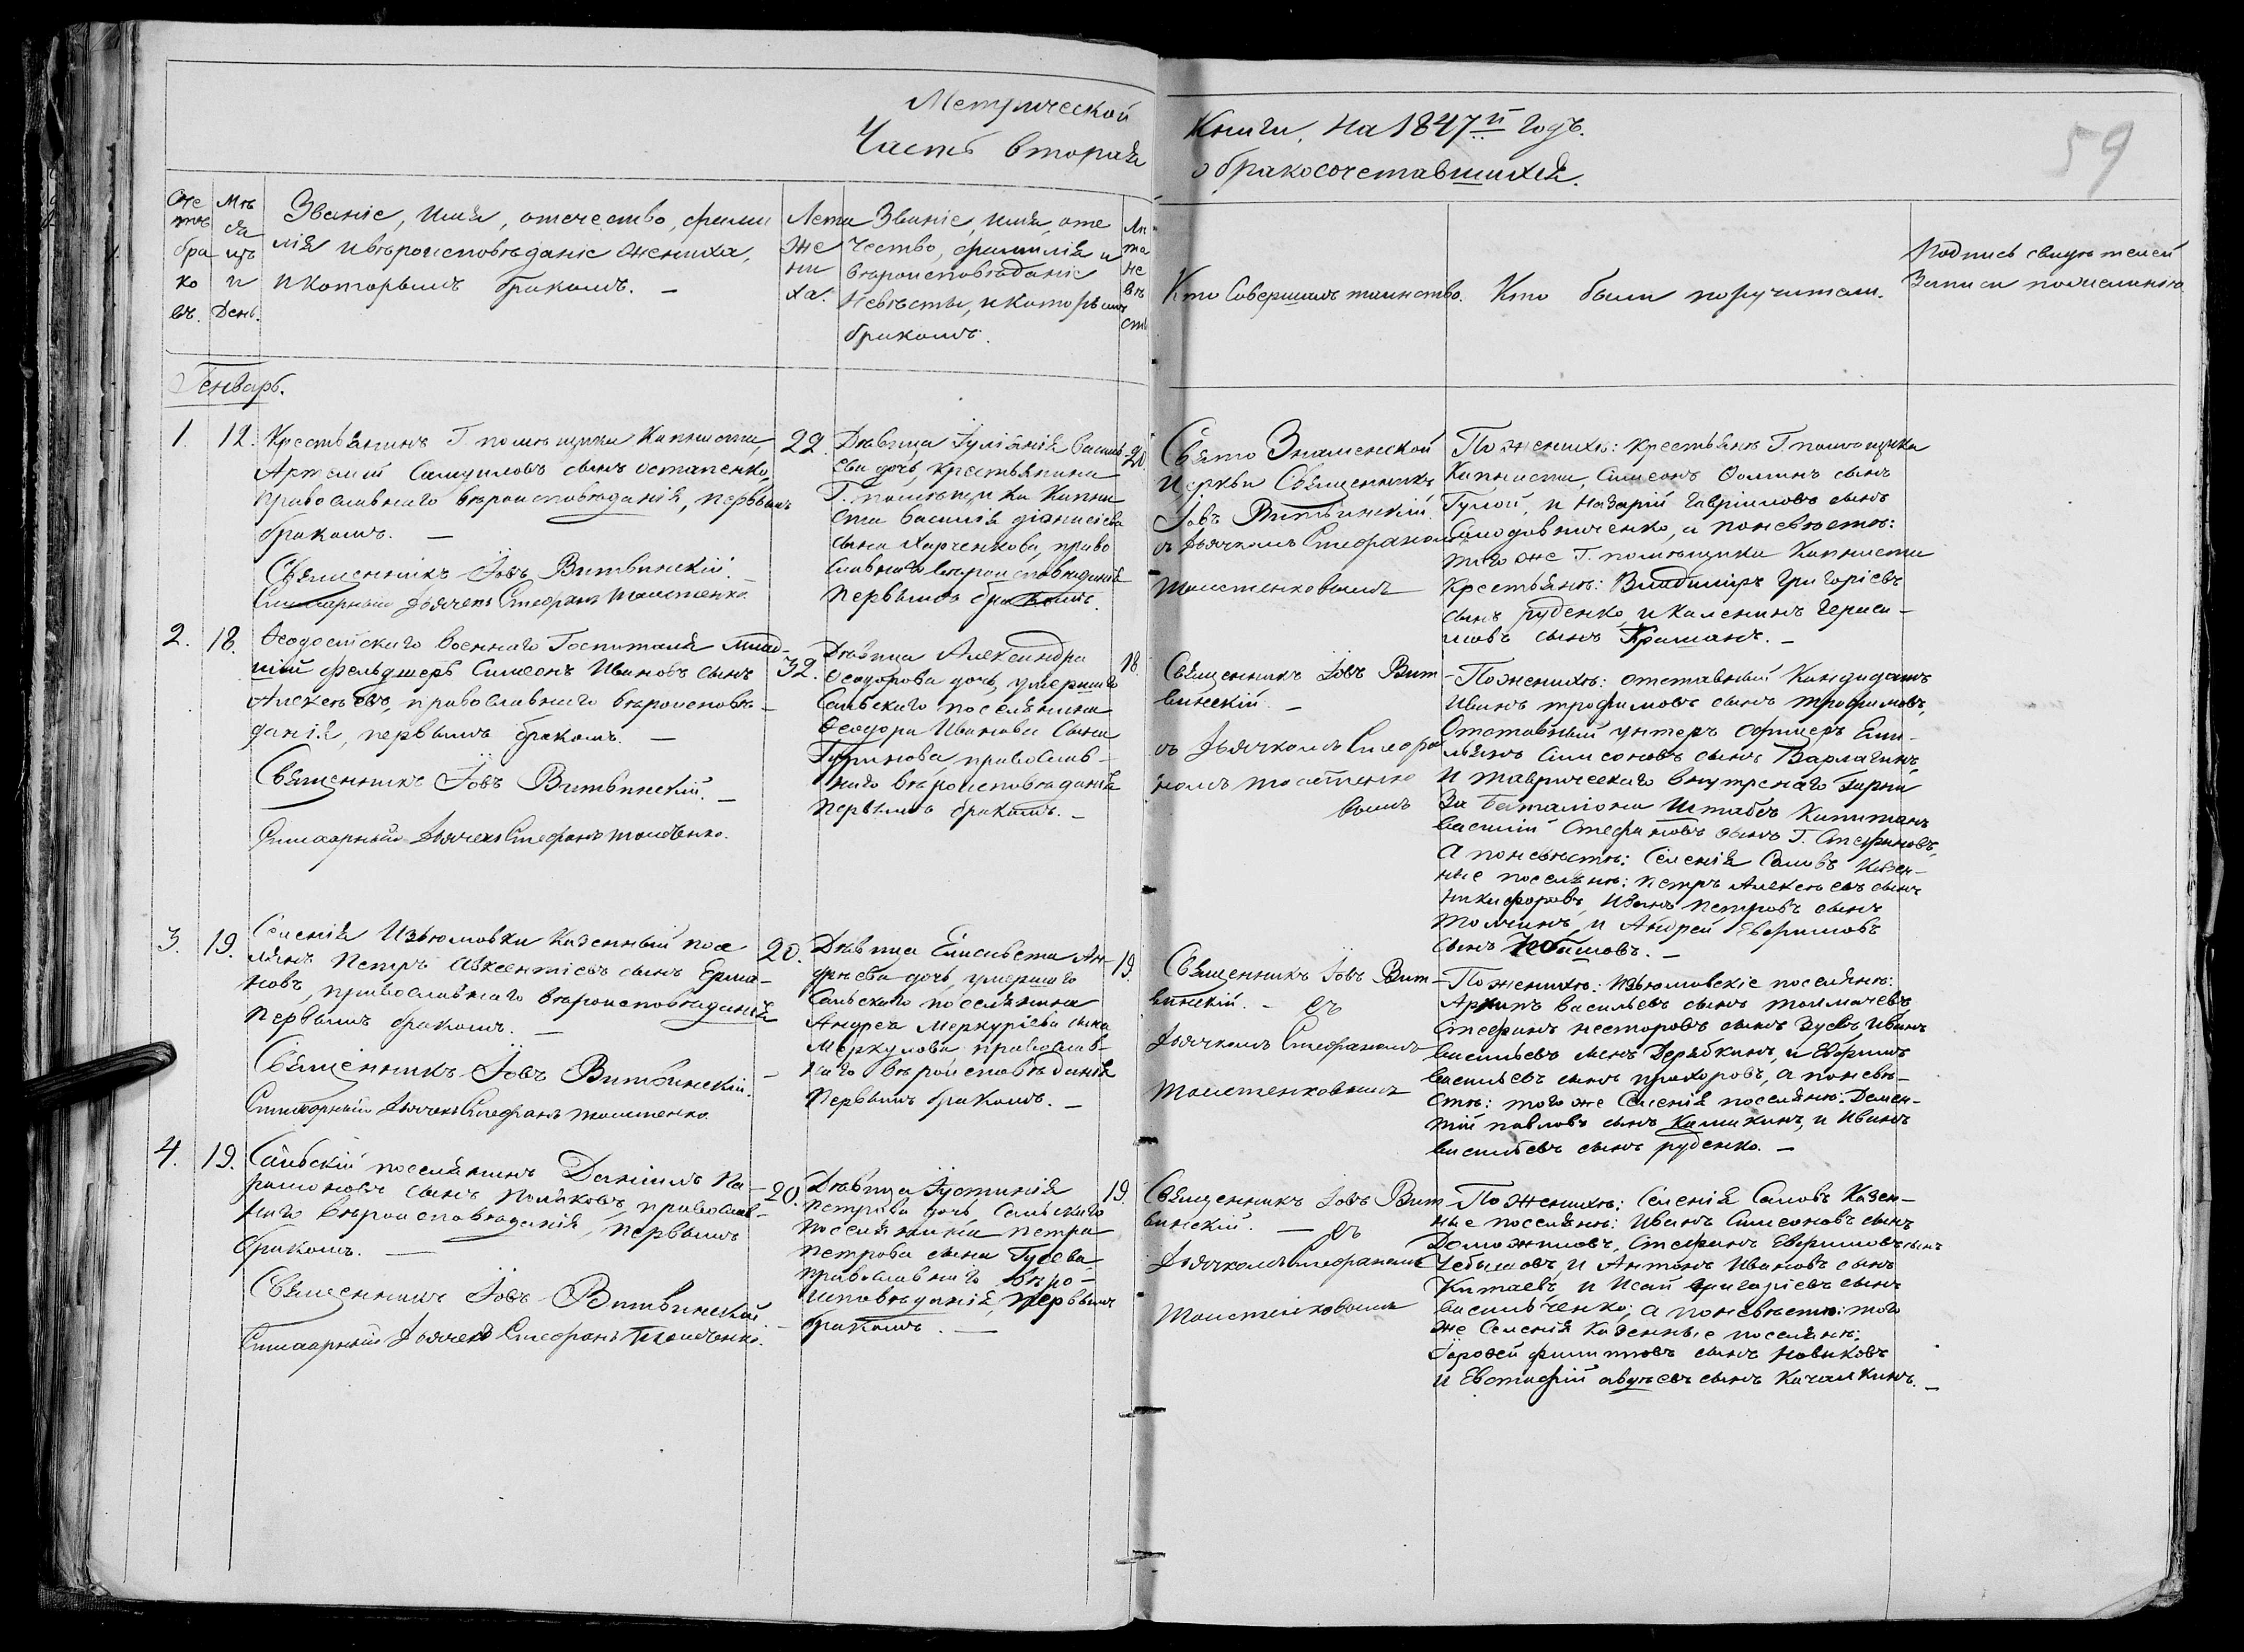 Метрической
Часть вторая
Книги, на 1847й годъ.
о бракосочетавшихся.
59
Сче
тъ
бра
ко
въ.
Мѣ
ся
цъ
и
День.
Званіе, имя, отечество, фами
лія и вѣроисповѣданіе жениха,
и которымъ бракомъ. —
Лета
же
ни
ха.
Званіе, имя, оте
чество, фамилія и
вѣроисповѣданіе
невѣсты, и которымъ
бракомъ.
Ле
та
не
вѣ
сты
Кто совершалъ таинство.
Кто были поручители.
Подпись свидѣтелей
записи по желанію
Генварь.
1.
12.
Крестьянинъ Г. помѣщика Капниста,
Артемій Самуиловъ сынъ Остапенко,
православнаго вѣроисповѣданія, первымъ
бракомъ. —
Священникъ Іовъ Витвинскій. —
Стихарный дьячекъ Стефанъ
22.
Дѣвица Іуліанія Василь
ева дочь, крестьянина
Г. помѣщика Капни
ста Василія Діонисіева
сына Харченкова, право
славнаго вѣроисповѣданія
первымъ бракомъ.
20.
Свято Знаменской
церкви Священникъ
Іовъ Витвинскій
съ дьячкомъ Стефаномъ
По женихѣ: крестьяне Г. помѣщика
Капниста, Симеонъ Фоминъ сынъ
Гулой, и Назарій Гавріиловъ сынъ
Солодовниченко, а по невѣстѣ:
того же Г. помѣщика Капниста
крестьяне: Владиміръ Григорієвъ
сынъ Руденко, и Каленикъ Гераси-
мовъ сынъ —
2.
18.
Ѳеодосійскаго Военнаго Госпиталя млад-
шій фельдшеръ Симеонъ Ивановъ сынъ
Алексѣевъ, православнаго вѣроисповѣ-
данія, первымъ бракомъ. —
Священникъ Іовъ Витвинскій. —
Стихарный дьячекъ Стефанъ
32.
Дѣвица Александра
Ѳеодорова дочь, умершаго
Сальскаго поселянина
Ѳеодора Иванова сына
Гуринова, православ-
наго вѣроисповѣданія
первымъ бракомъ. —
18.
Священникъ Іовъ Вит-
винскій. —
съ дьячкомъ Стефа
номъ
вымъ
По женихѣ: отставный Кандидатъ
Иванъ Трофимовъ сынъ Трофимовъ,
Отставный унтеръ офицеръ Еми-
льянъ Симеоновъ сынъ Варлагинъ,
и Таврическаго внутренаго Гарни
за баталіона Штабсъ Капитанъ
Василій Стефановъ сынъ Г. Стефановъ,
а по невѣстѣ: Селенія Саловъ Казен-
ные поселяне: Петръ Алексѣевъ сынъ
Никифоровъ, Иванъ Петровъ сынъ
Толчинъ, и Андрей Евфимовъ
сынъ Чебышовъ. —
3.
19.
Селенія Изюмовки Казенный посе
лянъ Петръ Авксентіевъ сынъ Ерма-
ковъ, православнаго вѣроисповѣданія
первымъ бракомъ. —
Священникъ Іовъ Витвинскій. —
Стихарный дьячекъ Стефанъ
20.
Дѣвица Елисавета Ан-
дреева дочь, умершаго
Сальскаго поселянина
Андрея Меркуріева сына
Меркулова, православ-
наго вѣроисповѣданія
первымъ бракомъ. —
19.
Священникъ Іовъ Вит-
винскій. — съ
дьячкомъ Стефаномъ
По женихѣ: Изюмовскіе поселяне:
Архипъ Васильевъ сынъ Толмачевъ,
Стефанъ Несторовъ сынъ Зуевъ, Иванъ
Васильевъ сынъ Дерябкинъ, и Евфимъ
Васильевъ сынъ Прохоровъ, а по невѣ-
стѣ: того же Селенія поселяне: Демен-
тій Павловъ сынъ Калишкинъ, и Иванъ
Васильевъ сынъ Руденко. —
4.
19.
Сальскій поселянинъ Даніилъ Па-
рамоновъ сынъ Поляковъ, православ-
наго вѣроисповѣданія, первымъ
бракомъ. —
Священникъ Іовъ Витвинскій. —
Стихарный дьячекъ Стефанъ
20.
Дѣвица Іустинія
Петрова дочь Сальскаго
поселянина Петра
Петрова сына Гусева
православнаго вѣро-
исповѣданія, первымъ
бракомъ. —
19.
Священникъ Іовъ Вит-
винскій. — съ
дьячкомъ Стефаномъ
По женихѣ: Селенія Саловъ Казен-
ные поселяне: Иванъ Симеоновъ сынъ
Доможиловъ, Стефанъ Евфимовъ сынъ
Чебышовъ, и Антонъ Ивановъ сынъ
Китаевъ, и Исай Григорієвъ сынъ
Васильченко; а по невѣстѣ: того
же Селенія Казенные поселяне:
Ерофей Филиповъ сынъ Новиковъ
и Евстафій Авдѣевъ сынъ Качалкинъ. —